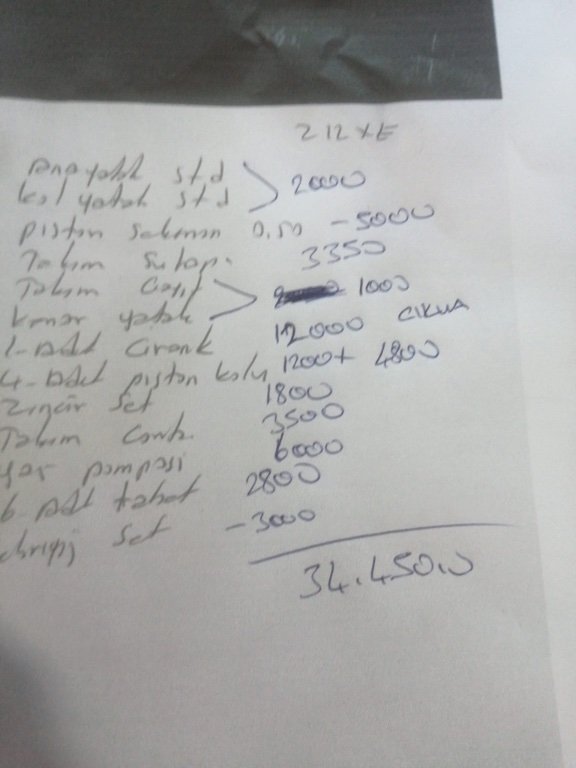 Z 12 XE
Anayatak std
kol yatak std 2000
piston sekman 0,50 - 5000
Takım Subap. 3350
Takım
kenar yatak 1000
1-Adet Crank 12000 CIKMA
4-Adet piston kolu 1200+ 4800
Zincir Set 1800
Takım Conta. 3500
Yağ pompası 6000
6 Adt 2800
Set - 3000
34.450.0